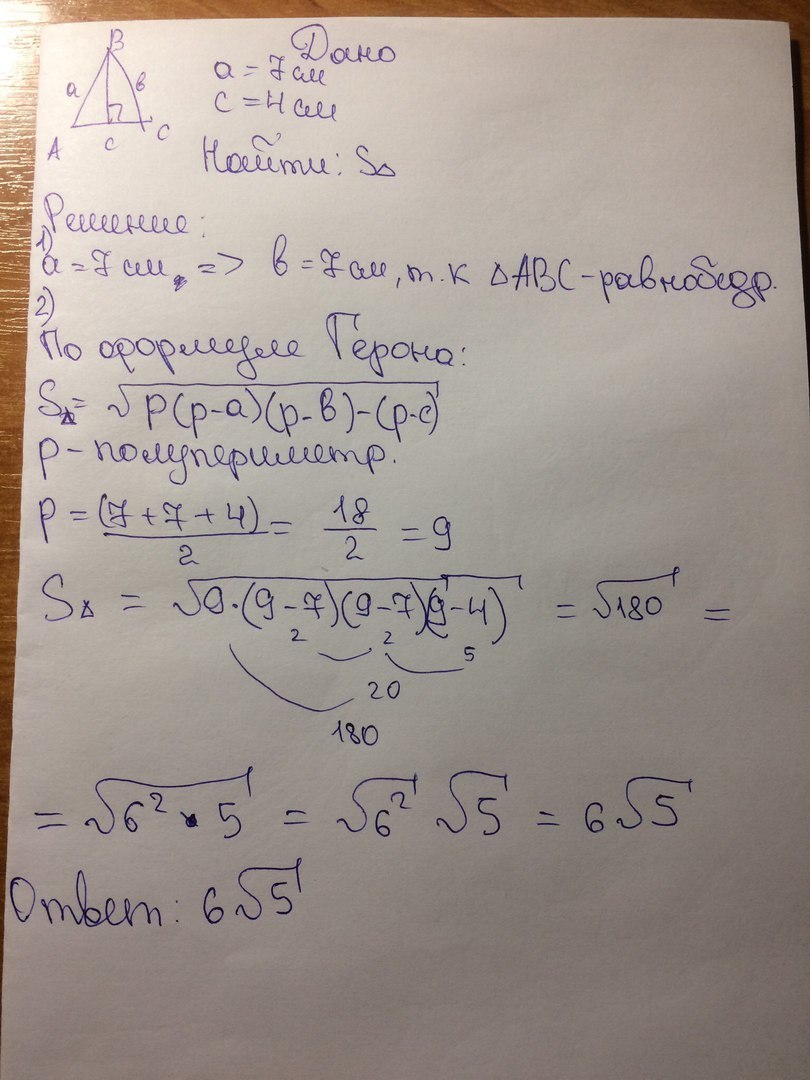 B
a в
A с C
Дано
a = 7 см
c = 4 см
Найти: S△
Решение:
1)
a = 7 см, => в = 7 см, т.к △ABC - равнобедр.
2)
По формуле Герона:
S△ = √p(p-a)(p-в)-(p-c)
p - полупериметр.
p = (7+7+4)/2 = 18/2 = 9
S△ = √9·(9-7)(9-7)(9-4) = √180 =
2 2 5
20
180
= √6²·5 = √6² √5 = 6√5
Ответ: 6√5